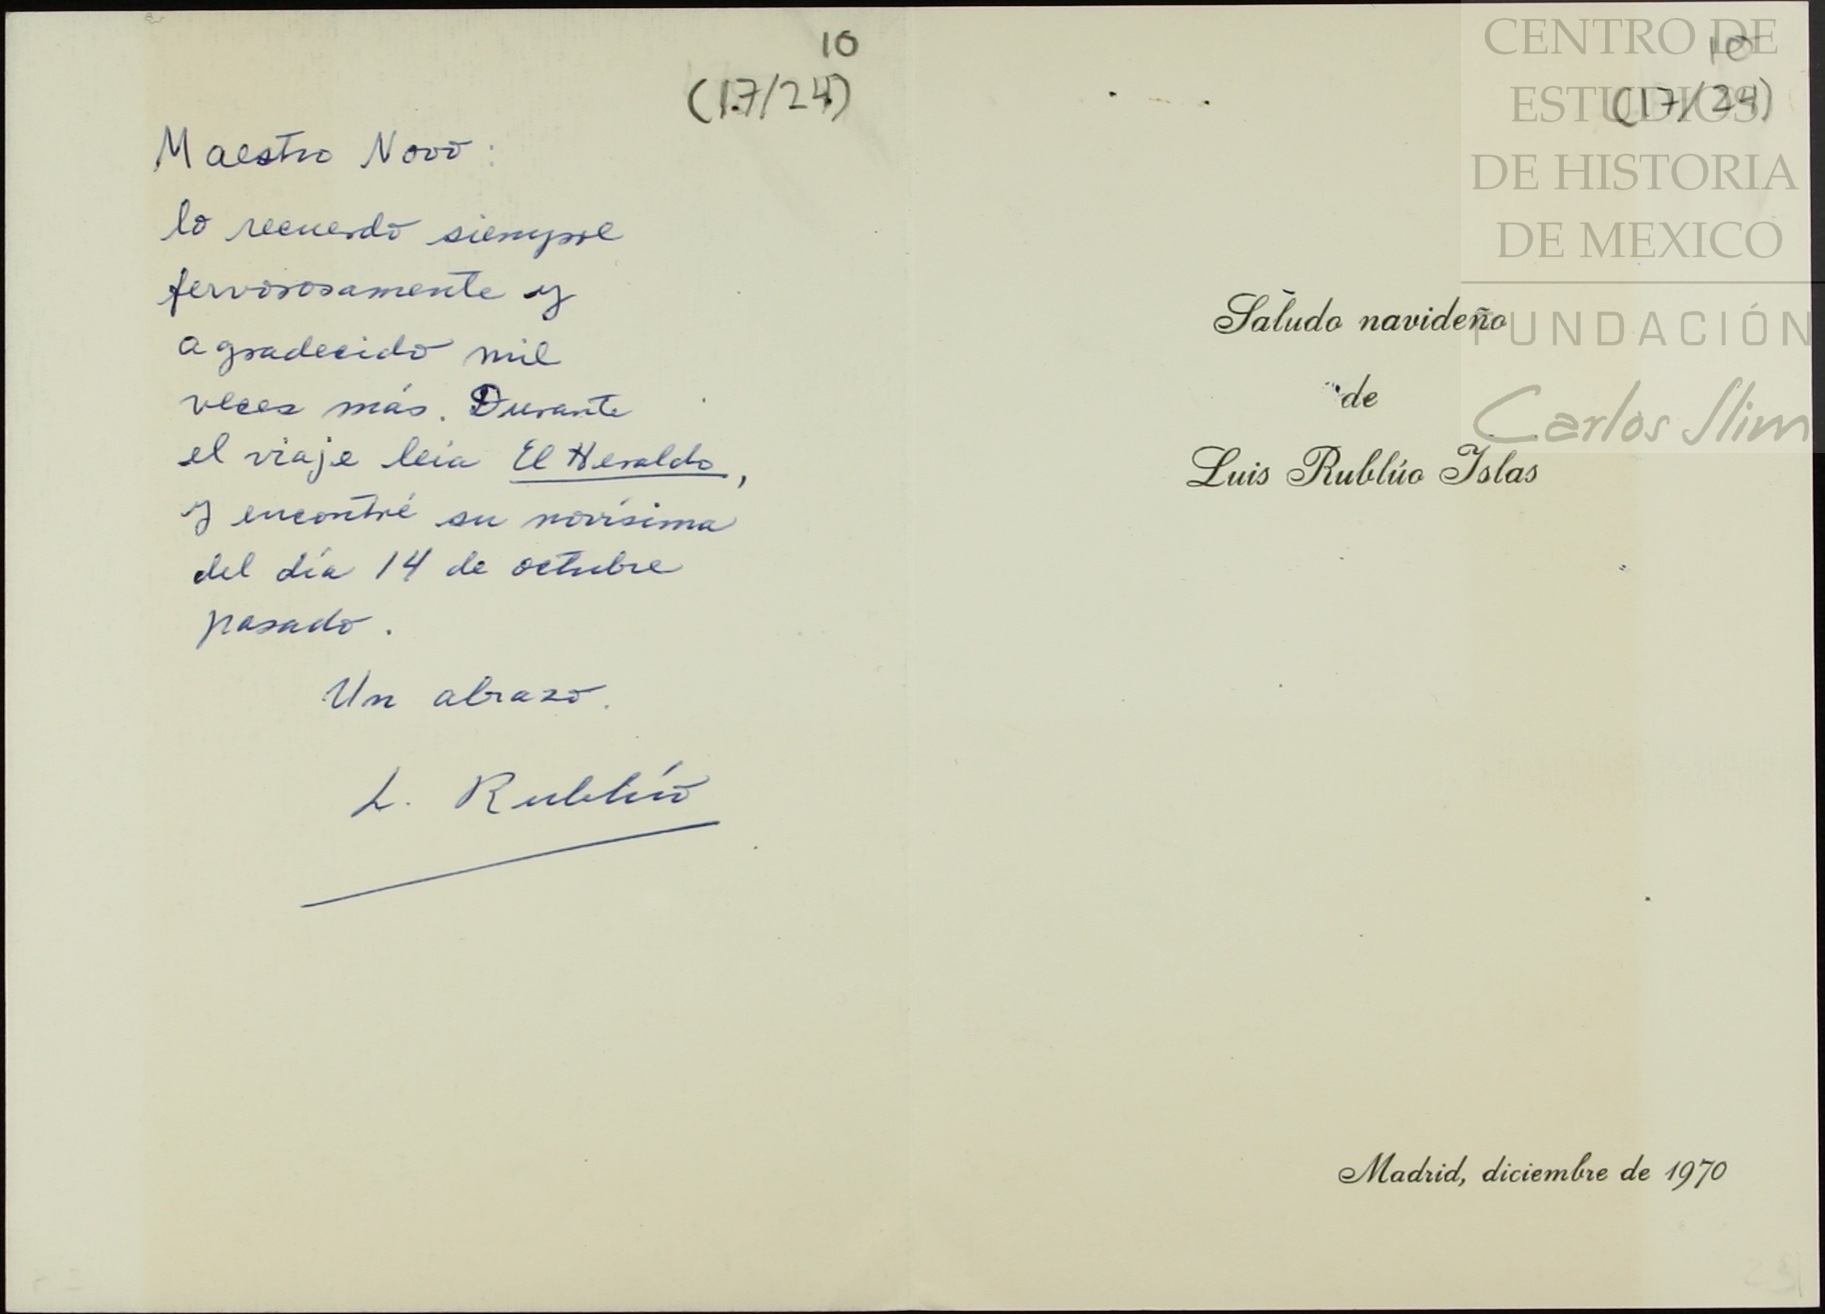 10
(17/24)
Maestro Novo:
lo recuerdo siempre
fervorosamente y
agradecido mil
veces más. Durante
el viaje leía El Heraldo,
y encontré su novísima
del día 14 de octubre
pasado.
Un abrazo.
L. Rublúo
10
(17/24)
CENTRO DE
ESTUDIOS
DE HISTORIA
DE MEXICO
FUNDACIÓN
Carlos Slim
Saludo navideño
de
Luis Rublúo Islas
Madrid, diciembre de 1970